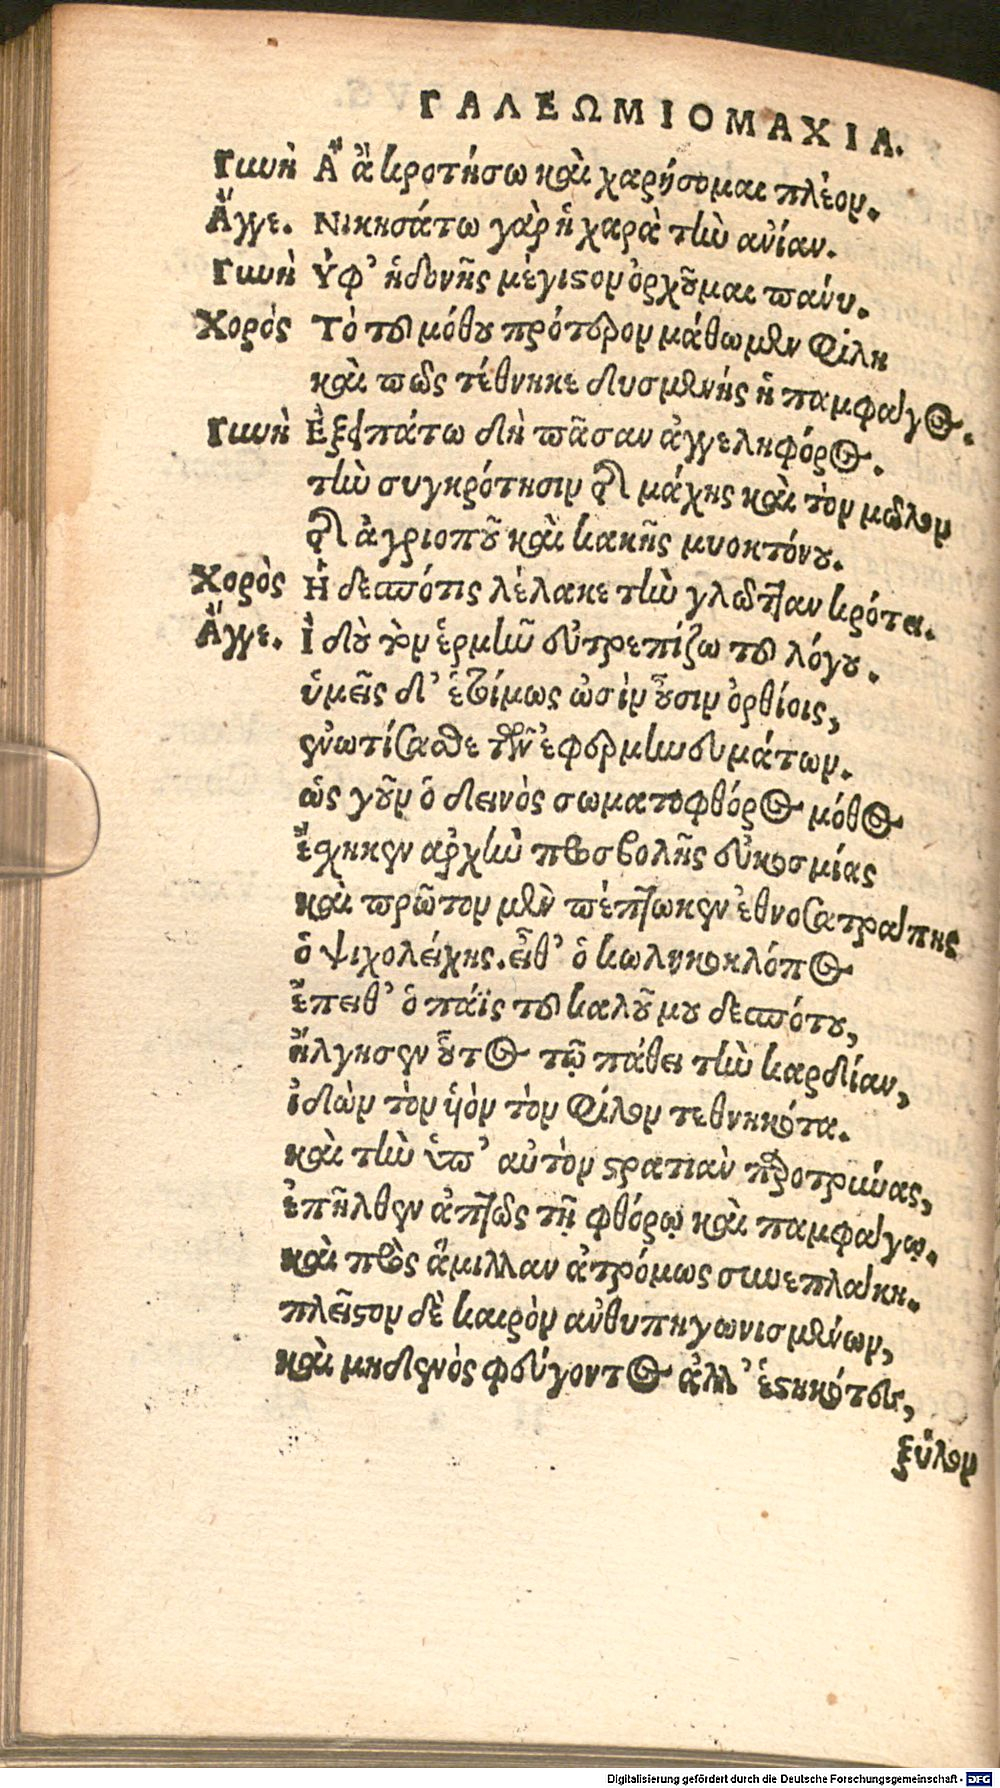 ΓΑΛΕΩΜΙΟΜΑΧΙΑ.
Γυνὴ Ἂ ἂ κροτήσω καὶ χαρήσομαι πλέον.
Ἄγγε. Νικησάτω γὰρ ἡ χαρὰ τὴν ἀνίαν.
Γυνὴ Ὑφ' ἡδονῆς μέγιστον ὀρχοῦμαι πάνυ.
Χορὸς Τὸ τοῦ μόθου πρότερον μάθωμεν φίλη
καὶ πῶς τέθνηκε δυσμενής ἡ παμφάγος.
Γυνὴ Ἐξειπάτω δὴ πᾶσαν ἀγγεληφόρος.
τὴν συγκρότησιν τῆς μάχης καὶ τὸν μῶλον
τῆς ἀγριοποῦ καὶ κακῆς μυοκτόνου.
Χορὸς Ἡ δεσπότις λέλακε τὴν γλῶτταν κρότει.
Ἄγγε. Ἰδοὺ τὸν ἑρμῆν εὐτρεπίζω τοῦ λόγου.
ὑμεῖς δ' ἑτίμως ὠσὶν οὖσιν ὀρθίοις,
ἐνωτίσασθε τῶν ἐφερμηνευμάτων.
ὡς γοῦν ὁ δεινὸς σωματοφθόρος μόθος
ἔσχηκεν ἀρχὴν προσβολῆς εὐκοσμίας
καὶ πρῶτον μὲν πέπτωκεν ἐθνοσατράπης
ὁ ψιχολείχης. εἶθ' ὁ κωληκοκλόπος
ἔπειθ' ὁ πάϊς τοῦ καλοῦ μου δεσπότου,
ἤλγησεν οὗτος τῷ πάθει τὴν καρδίαν,
ἰδὼν τὸν υἱὸν τὸν φίλον τεθνηκότα.
καὶ τὴν ὑπ' αὐτὸν στρατιὰν παροτρύνας,
ἐπῆλθεν ἀπτῶς τῇ φθόρῳ καὶ παμφάγῳ.
καὶ πρὸς ἅμιλλαν ἀτρόμως συνεπλάκη.
πλεῖστον δὲ καιρὸν ἀνθυπηγωνισμένων,
καὶ μηδενὸς φεύγοντος ἀλλ' ἑστηκότος,
ξύλον
Digitalisierung gefördert durch die Deutsche Forschungsgemeinschaft - DFG